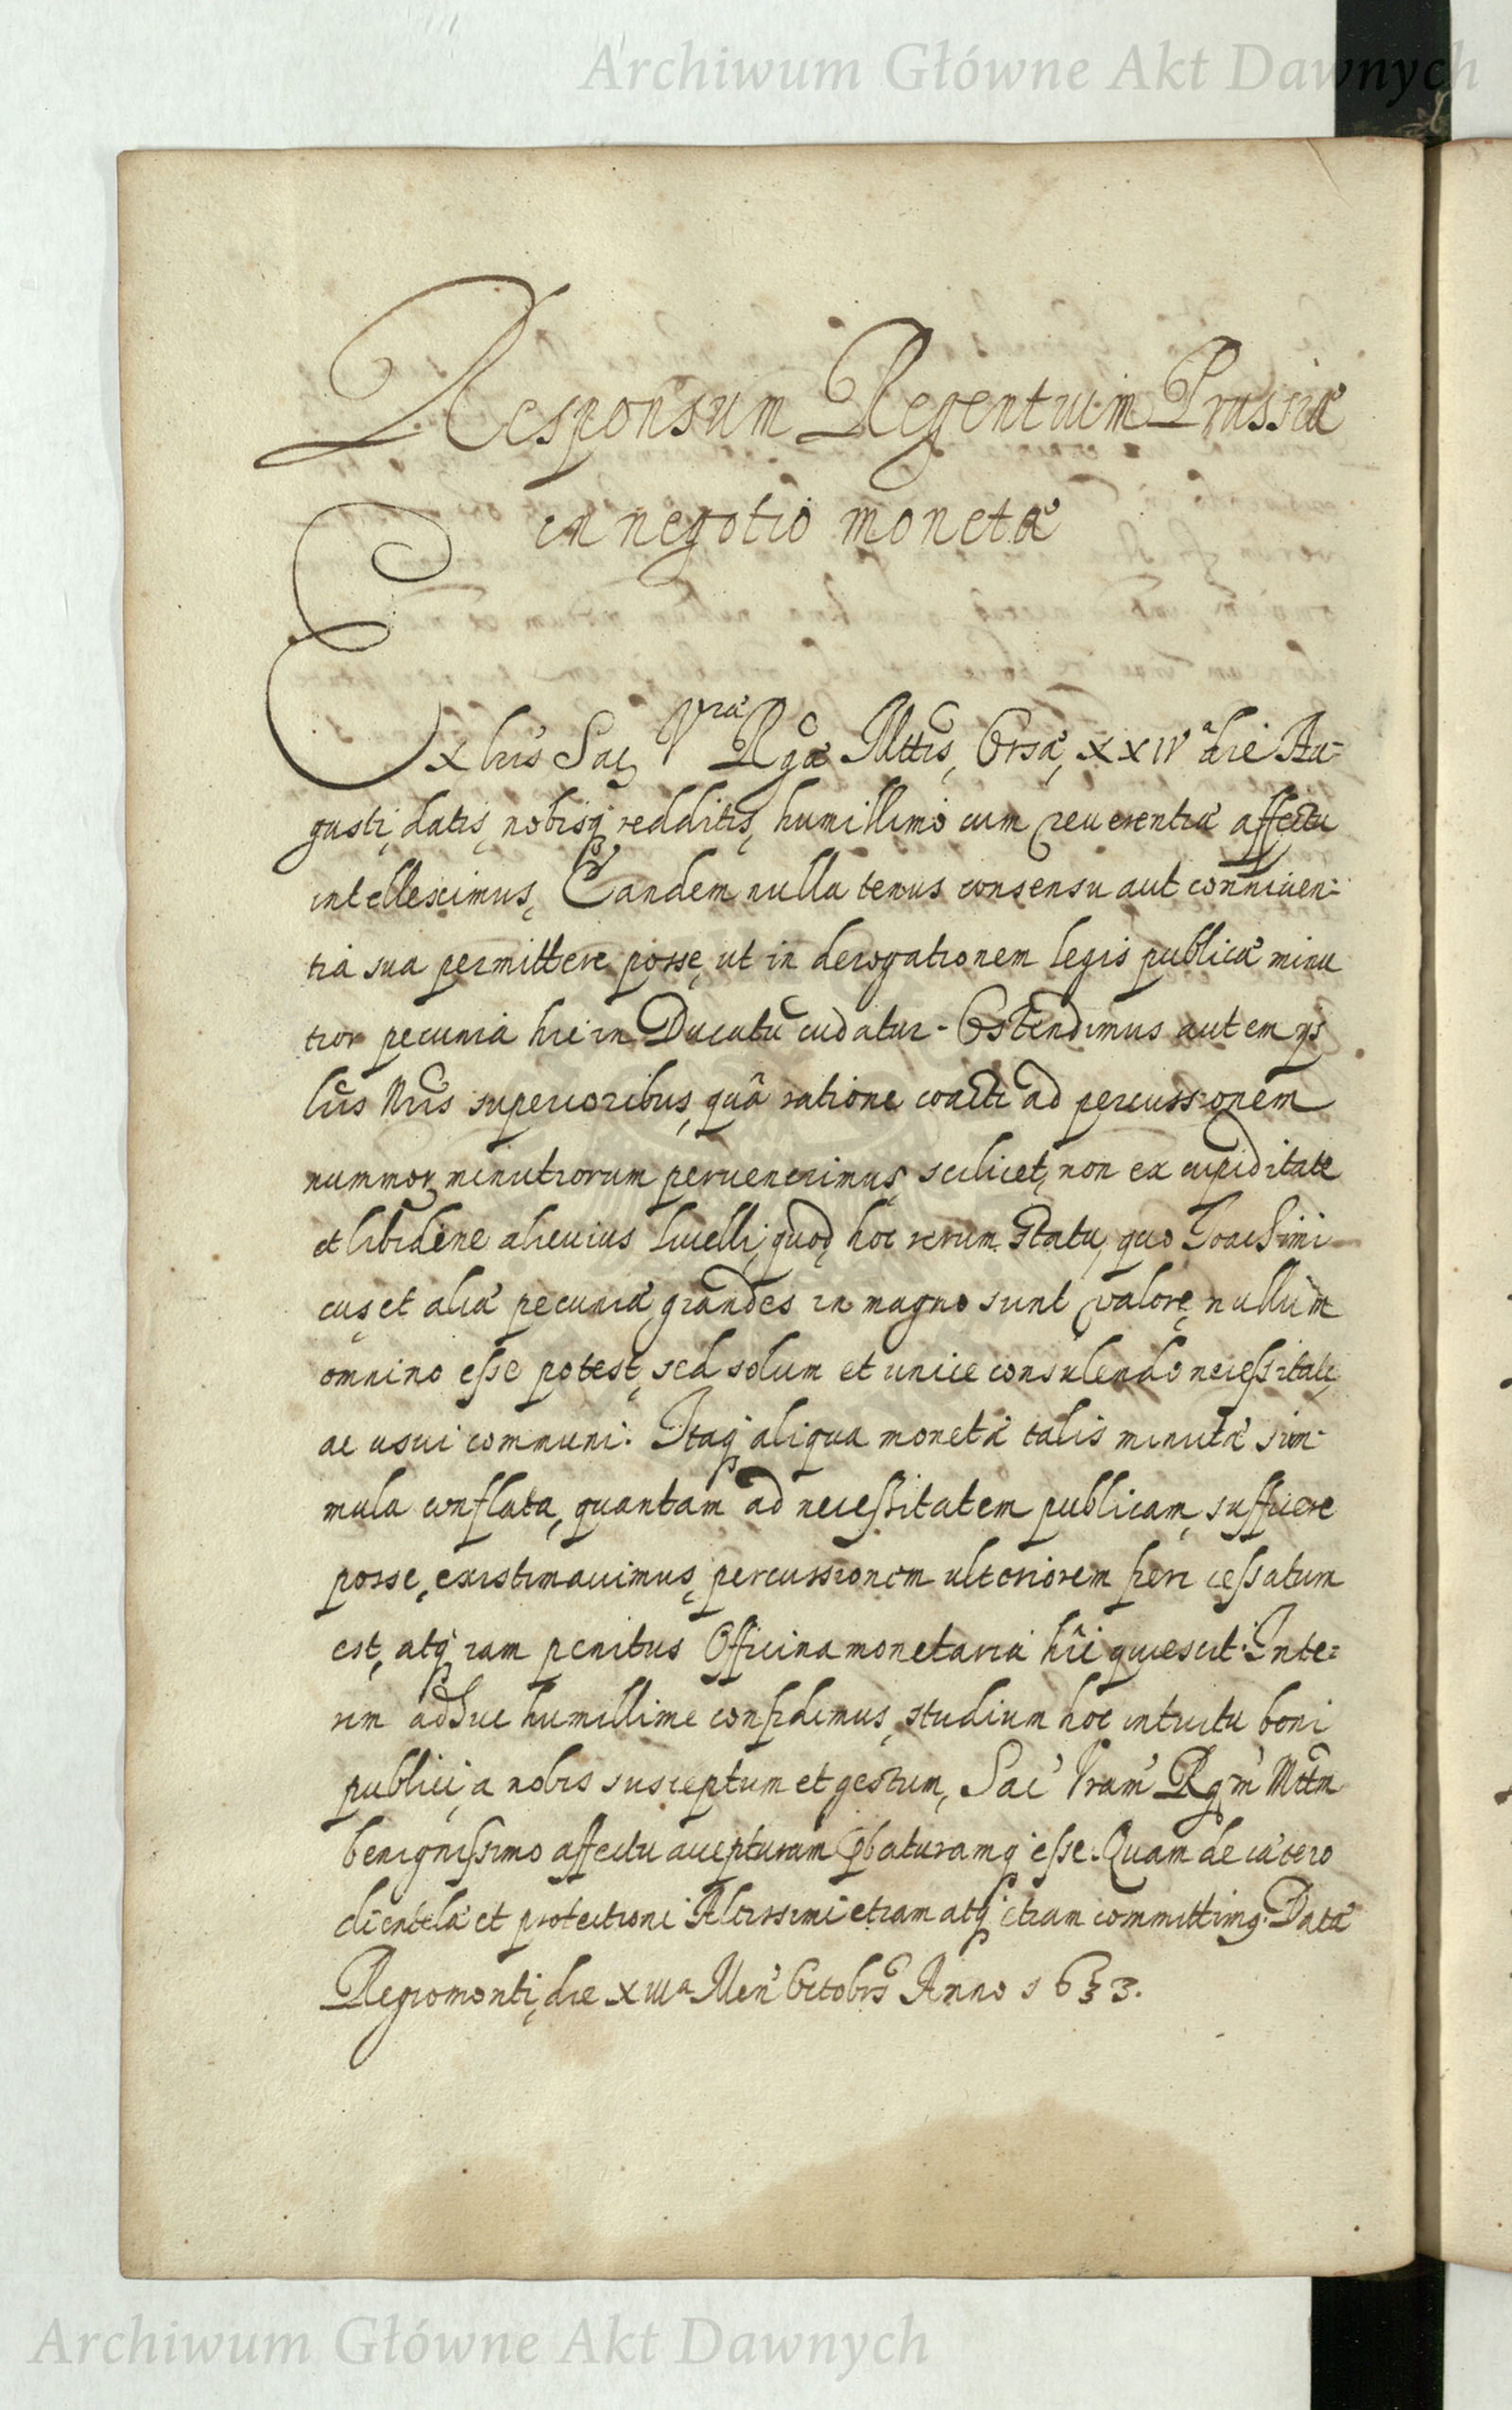 Archiwum Główne Akt Dawnych
Responsum Regentum Prussiæ
in negotio monetæ
Ex lris̃ Sac. Vræ Rgæ Mttis, Orsæ, XXIVª die Au-
gusti, datis, nobisq̃ redditis, humillimo cum reuerentia affectu
intelleximus, Eandem nulla tenus consensu aut conniuen-
tia sua permittere posse, ut in derogationem legis publicæ minu
tior pecunia hic in Ducatu cudatur. Ostendimus autem ijs
lr̃is nr̃is superioribus, quâ ratione coacti ad percussionem
nummor. minutiorum peruenerimus, scilicet, non ex cupiditate
et libidine alicuius lucelli, quod, hoc rerum statu, quo Joachimi
cus, et aliæ pecuniæ, grandes in magno sunt valore, nullum
omnino esse potest, sed solum et unice consulendo necessitati,
ac usui communi. Itaq̃ aliqua monetæ talis minutæ sum-
mula conflata, quantam ad necessitatem publicam, sufficere
posse, existimauimus, percussionem ulteriorem fieri cessatum
est, atq̃ iam penitus Officina monetaria hîc quiescit. Inte-
rim adhuc humillime confidimus, studium hoc intuitu boni
publici, a nobis susceptum et gestum, Sac̃ Vram̃ Rgm̃ Mttm
benignissimo affectu accepturam, p̃baturamq̃ esse. Quam de cætero
clientelæ et protectioni Altissimi etiam atq̃ etiam committimꝰ. Datæ
Regiomonti, die XIIIª Men̄ Octobrs̃ Anno 1633.
Archiwum Główne Akt Dawnych